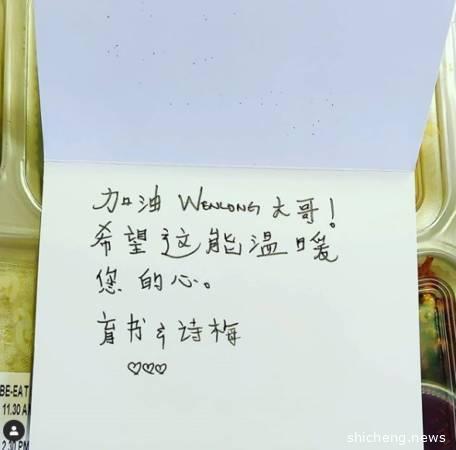 加油 WENLONG 大哥!
希望这能温暖
您的心。
育书 & 诗梅
♡♡♡
BE-EAT
11.30 A
2.30 PM
shicheng.news